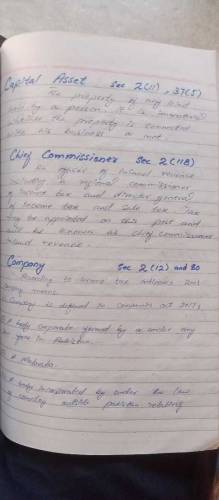 Capital Asset sec 2(11), 37(5)
The property of any kind
held by a person, it is
whether the property is connected
with his business or not.
Chief Commissioner sec 2(11B)
An officer of Inland revenue
regional commissioner
of income tax and director general
of income tax and sale tax
may be appointed on this post and
will be known as chief commissioner
inland revenue.
Company sec 2(12) and 80
According to income tax ordinance 2001
company means
Company is defined in companies act 2017,
A body corporate formed by or under any
law in Pakistan.
A Modaraba.
A body incorporated by or under the law
of country outside pakistan relating